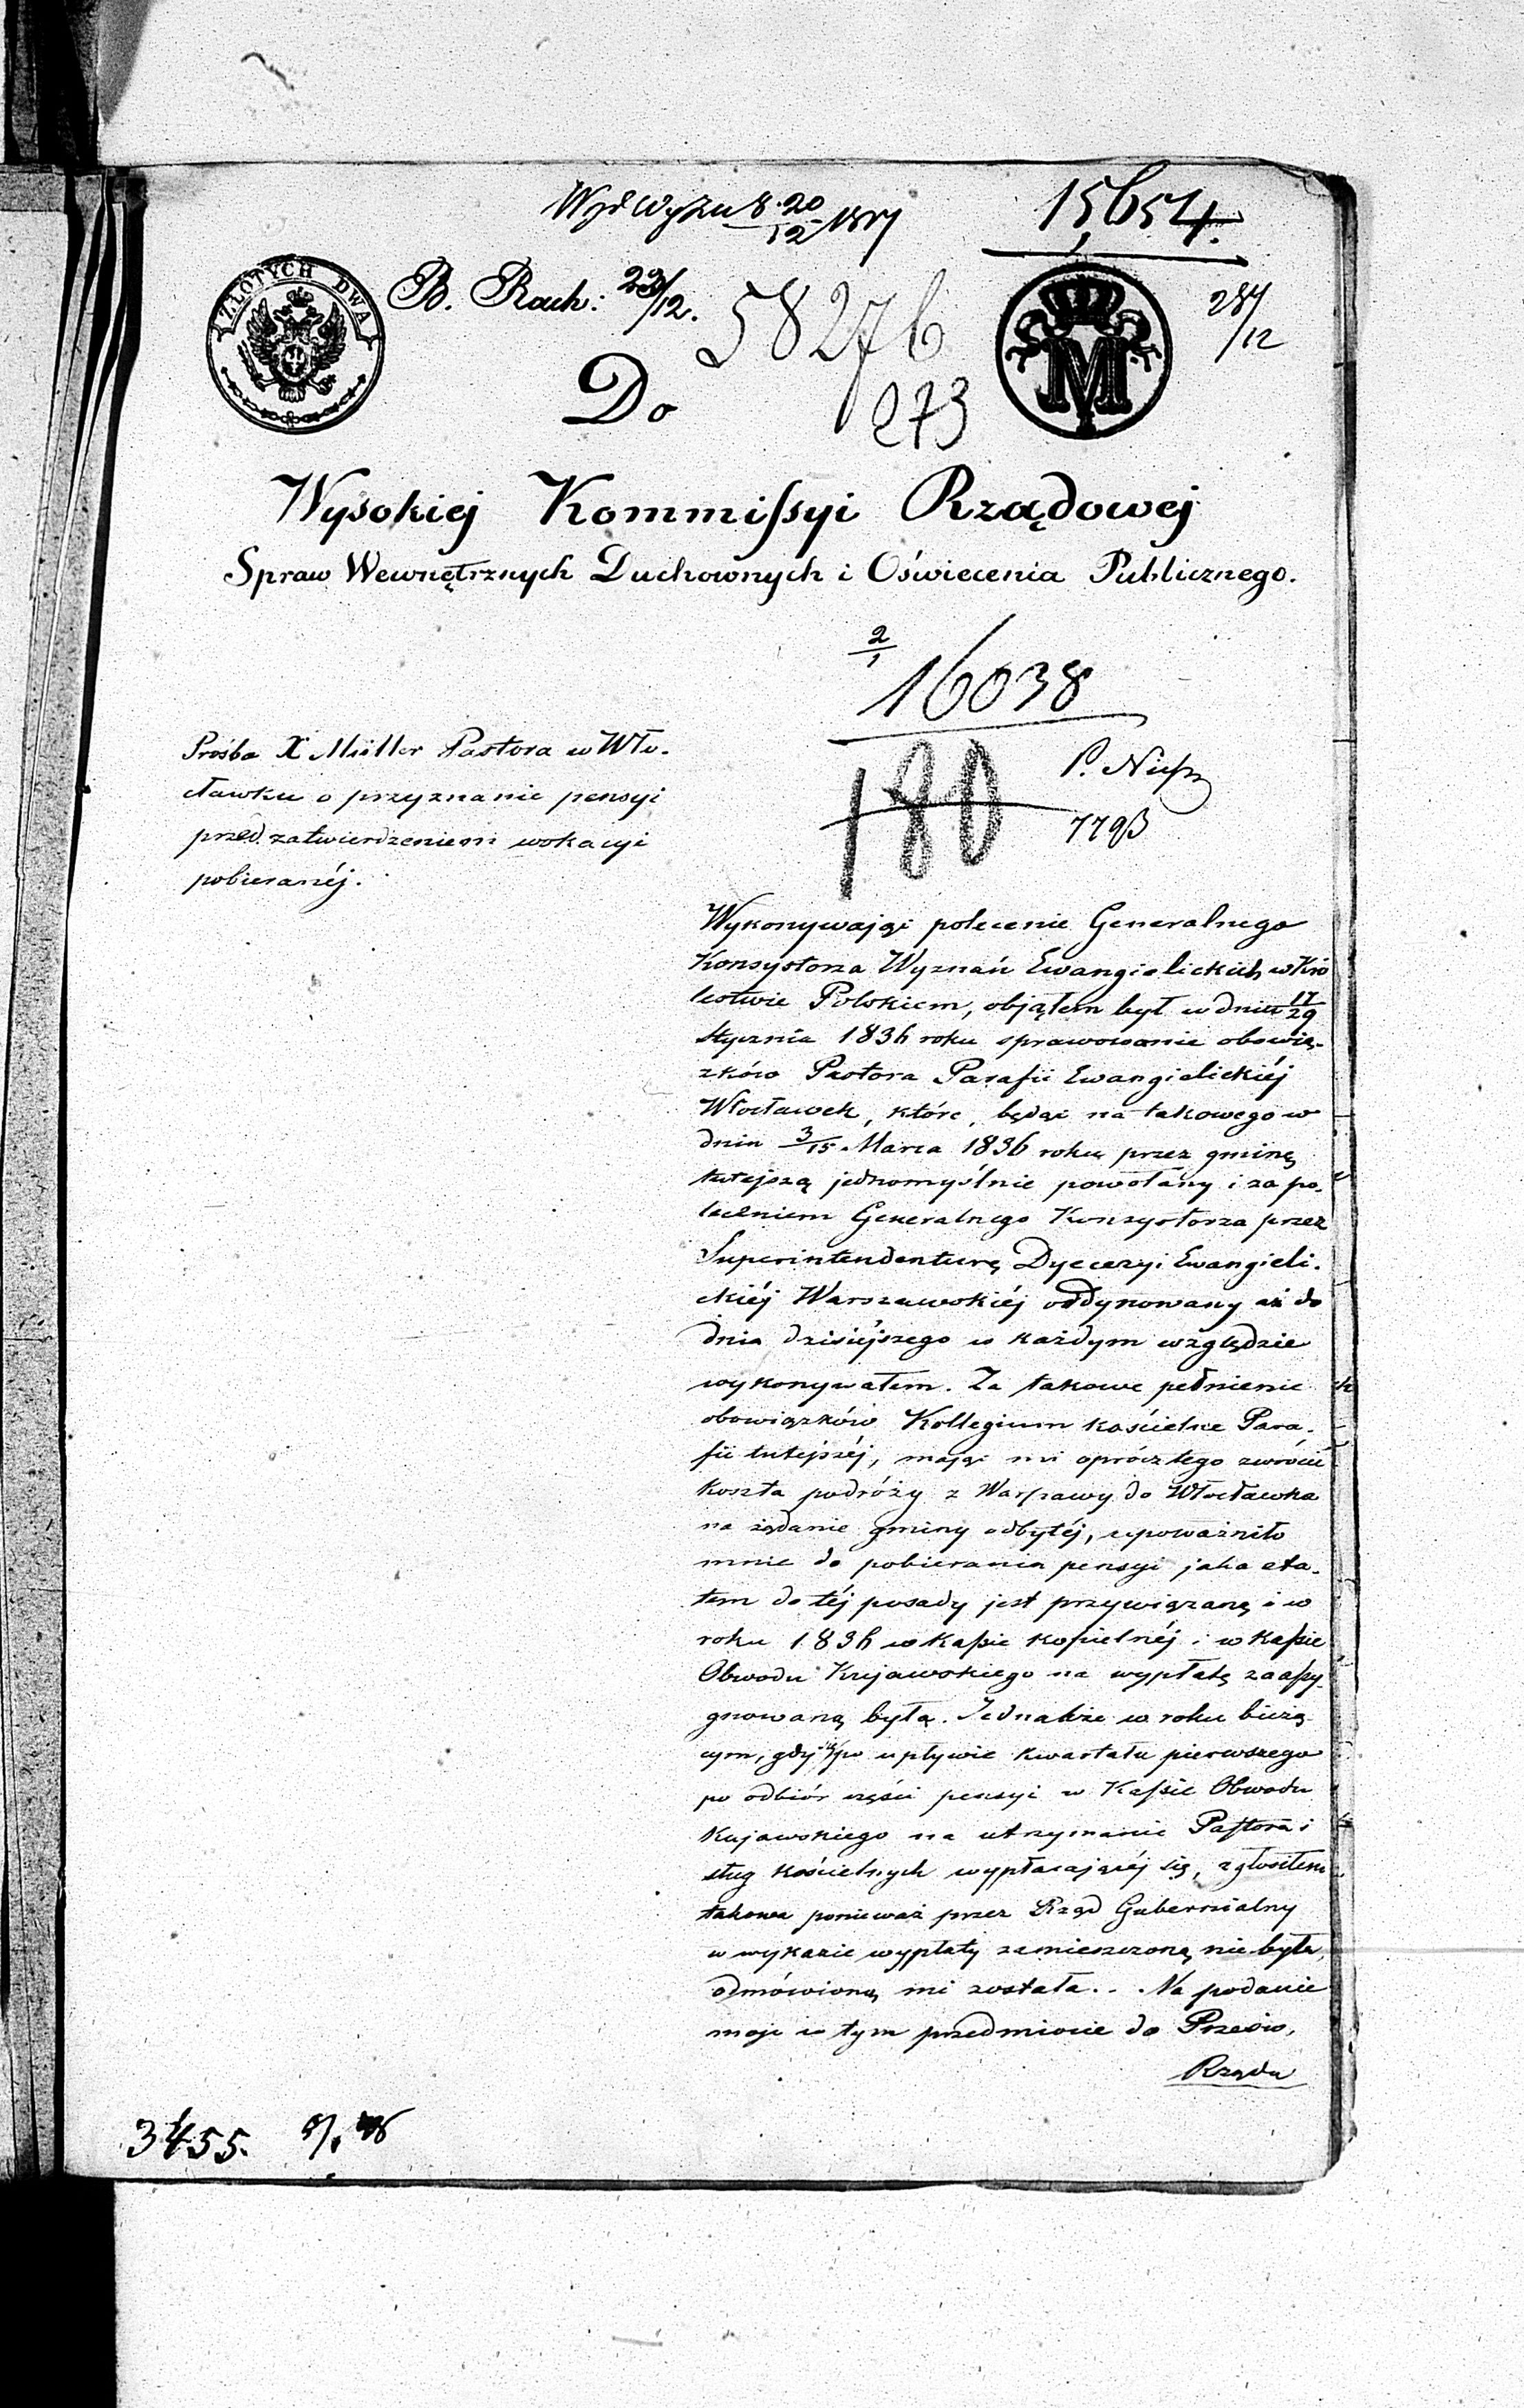 15,654.
ZŁOTYCH DWA
B. Rach: 23/12.
58276
28/12
Do
273
M
Wysokiej Kommissyi Rządowej
Spraw Wewnętrznych Duchownych i Oświecenia Publicznego.
2/1
16038
Prośba X Müller Pastora w Wło-
cławku o przyznanie pensyi
przed zatwierdzeniem wokacyi
pobieranéj.
180
P.
Wykonywając polecenie Generalnego
Konsystorza Wyznań Ewangielickich w Kró
lestwie Polskiem, objąłem był w dniu 17/29
Stycznia 1836 roku sprawowanie obowią-
zków Pastora Parafii Ewangielickiéj
Włocławek, które, będąc na takowego w
dniu 3/15 Marca 1836 roku przez gminę
tutejszą jednomyślnie powołany i za po-
leceniem Generalnego Konsystorza przez
Superintendenturę Dyecezyi Ewangieli-
ckiéj Warszawskiéj ordynowany aż do
dnia dzisiéjszego w każdym względzie
wykonywałem. Za takowe pełnienie
obowiązków Kollegium kościelne Para-
fii tutejszéj, mając mi oprócz tego zwrócić
koszta podróży z Warszawy do Włocławka
na żądanie gminy odbytéj, upoważniło
mnie do pobierania pensyi jaka eta-
tem do téj posady jest przywiązaną i w
roku 1836 w kassie kościelnéj i w kassie
Obwodu Kujawskiego na wypłatę zaassy-
gnowaną była. Jednakże w roku bieżą-
cym, gdy po upływie kwartału pierwszego
po odbiór części pensyi w Kassie Obwodu
Kujawskiego na utrzymanie Pastora i
sług kościelnych wypłacającéj się, zgłosiłem
takowa ponieważ przez Rząd Gubernialny
w wykazie wypłaty zamieszczoną nie była,
odmówioną mi została. . . Na podanie
moje w tym przedmiocie do Prześw.
Rządu
3455.